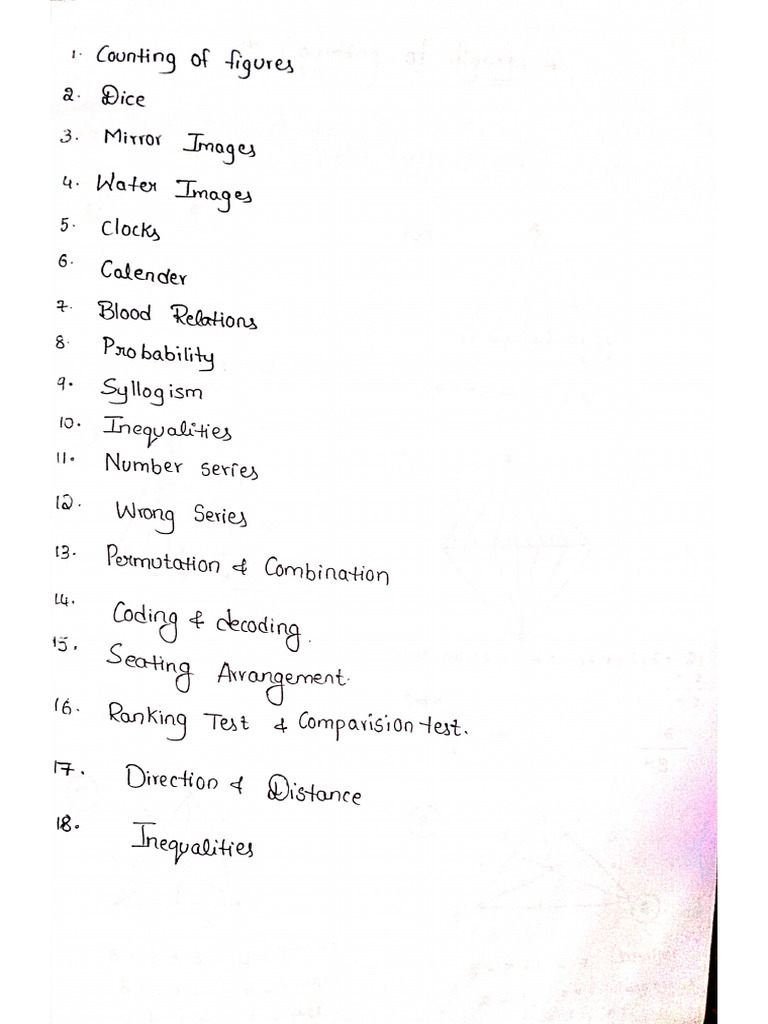 1. Counting of figures
2. Dice
3. Mirror Images
4. Water Images
5. Clocks
6. Calender
7. Blood Relations
8. Probability
9. Syllogism
10. Inequalities
11. Number series
12. Wrong Series
13. Permutation & Combination
14. Coding & decoding.
15. Seating Arrangement.
16. Ranking Test & Comparision test.
17. Direction & Distance
18. Inequalities